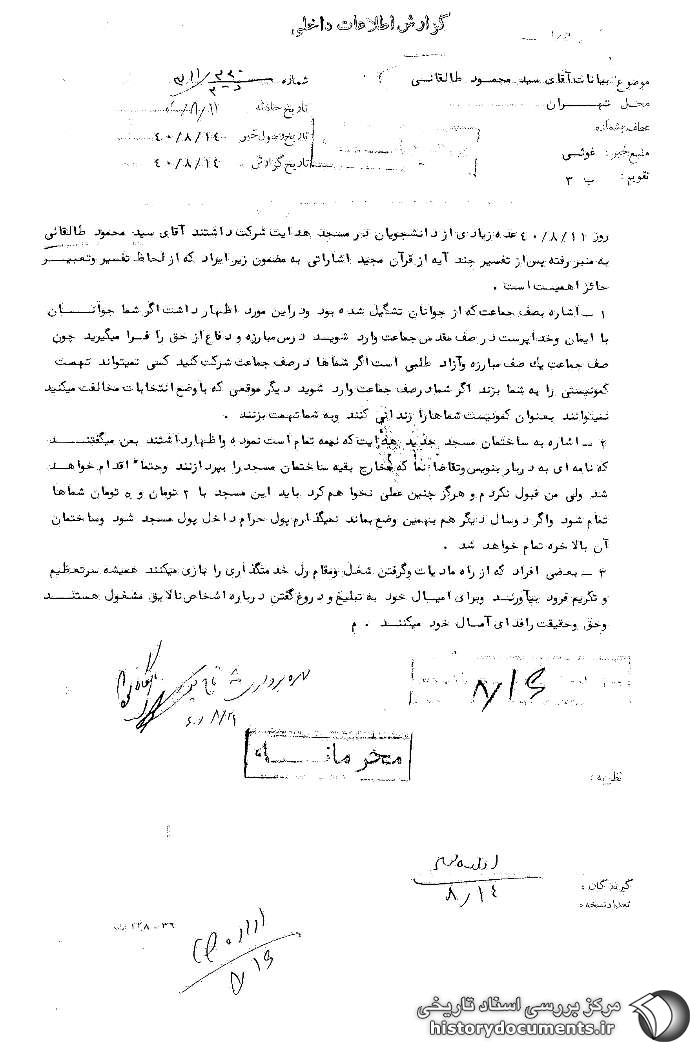 گزارش اطلاعات داخلی
موضوع: بیانات آقای سید محمود طالقانی
شماره
محل تهران
تاریخ حادثه ۴۰/۸/۱۱
عطف بشماره
تاریخ وصول خبر ۴۰/۸/۱۴
منبع خبر: غوثی
تاریخ گزارش ۴۰/۸/۱۴
تقویم: ب ۳
روز ۴۰/۸/۱۱ عده زیادی از دانشجویان در مسجد هدایت شرکت داشتند آقای سید محمود طالقانی
به منبر رفته پس از تفسیر چند آیه از قرآن مجید اشاراتی به مضمون زیر ایراد که از لحاظ تفسیر وتعبیر
حائز اهمیت است .
۱ ــ اشاره بصف جماعت که از جوانان تشکیل شده بود ودراین مورد اظهار داشت اگر شما جوانان
با ایمان وخدا پرست در صف مقدس جماعت وارد شوید درس مبارزه و دفاع از حق را فرا میگیرید چون
صف جماعت یک صف مبارزه وآزاد طلبی است اگر شماها درصف جماعت شرکت کنید کسی نمیتواند تهمت
کمونیستی را به شما بزند اگر شما درصف جماعت وارد شوید دیگر موقعی که با وضع انتخابات مخالفت میکنید
نمیتوانند بعنوان کمونیست شماها را زندانی کنند وبه شما تهمت بزنند .
۲ ــ اشاره به ساختمان مسجد جدید هدایت که نیمه تمام است نموده واظهارداشتند بمن میگفتند
که نامه ای به دربار بنویس وتقاضا نما که مخارج بقیه ساختمان مسجد را بپردازند وحتما" اقدام خواهد
شد ولی من قبول نکردم و هرگز چنین عملی نخواهم کرد باید این مسجد با ۲ تومان و ۵ تومان شماها
تمام شود واگر دوسال دیگر هم بهمین وضع بماند نمیگذارم پول حرام داخل پول مسجد شود وساختمان
آن بالاخره تمام خواهد شد .
۳ ــ بعضی افراد که از راه مادیات وگرفتن شغل ومقام رل خدمتگذاری را بازی میکنند همیشه سرتعظیم
و تکریم فرود بیآورند وبرای امیال خود به تبلیغ و دروغ گفتن درباره اشخاص نالایق مشغول هستند
وحق وحقیقت رافدای آمال خود میکنند . م
محرمانه
نظریه:
۸/۱۴
گیرندگان:
تعداد نسخه:
مرکز بررسی اسناد تاریخی
historydocuments.ir